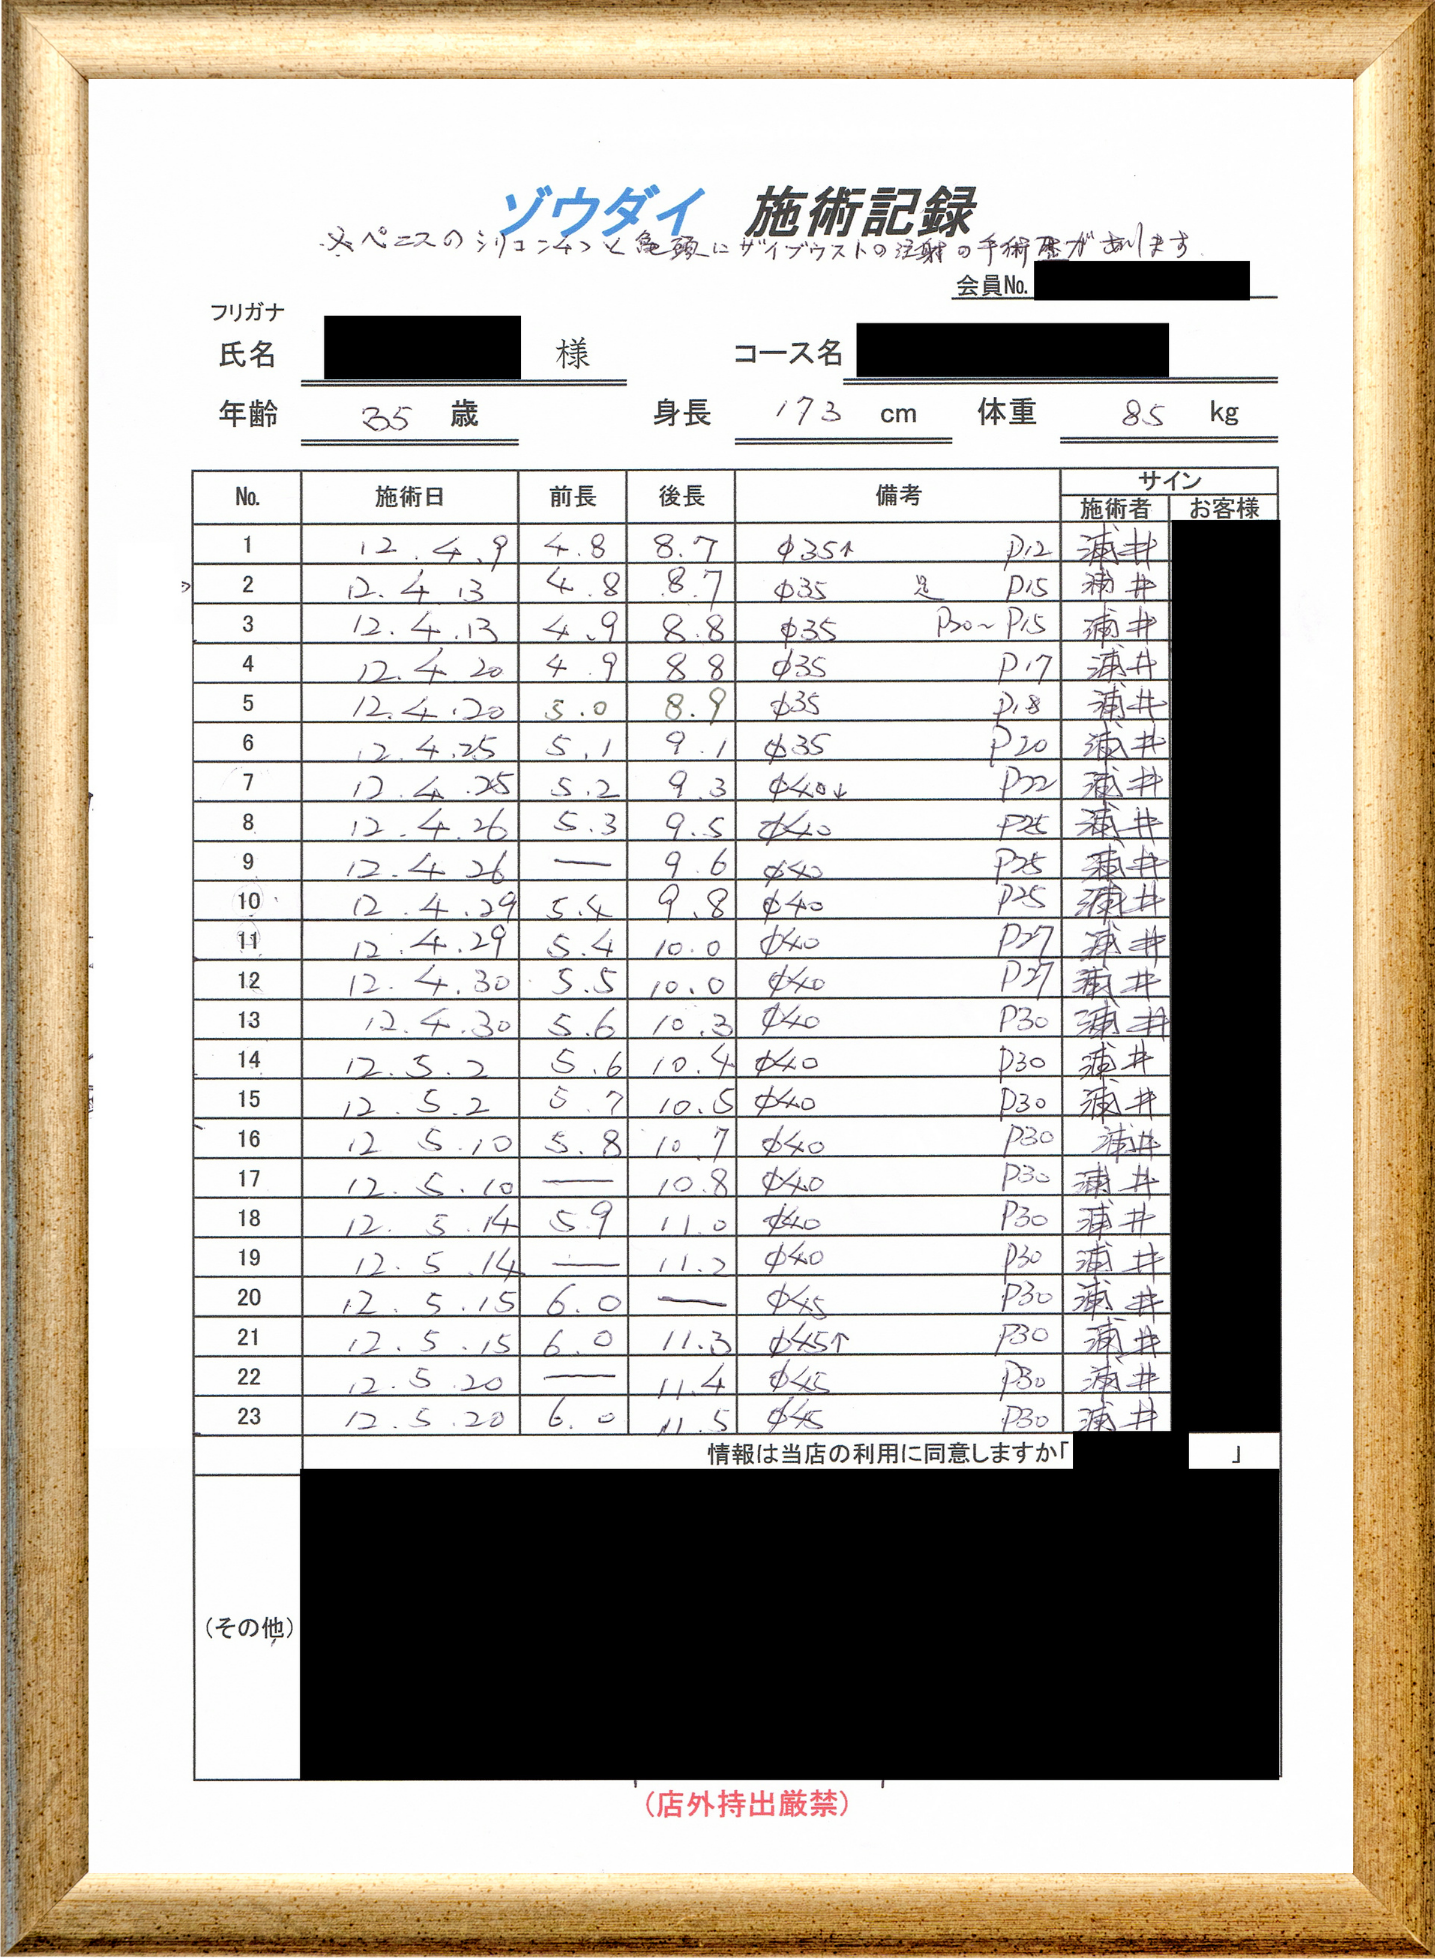 ゾウダイ 施術記録
※ペニスのシリコン4コと亀頭にザイブウストの注射の手術歴があります
会員No.
フリガナ
氏名 様 コース名
年齢 35 歳 身長 173 cm 体重 85 kg
No. 施術日 前長 後長 備考 サイン
施術者 お客様
1 12.4.9 4.8 8.7 φ35↑ P12 浦井
2 12.4.13 4.8 8.7 φ35 P15 浦井
3 12.4.13 4.9 8.8 φ35 P20~P15 浦井
4 12.4.20 4.9 8.8 φ35 P17 浦井
5 12.4.20 5.0 8.9 φ35 P18 浦井
6 12.4.25 5.1 9.1 φ35 P20 浦井
7 12.4.25 5.2 9.3 φ40↓ P22 浦井
8 12.4.26 5.3 9.5 φ40 P25 浦井
9 12.4.26 — 9.6 φ40 P25 浦井
10 12.4.29 5.4 9.8 φ40 P25 浦井
11 12.4.29 5.4 10.0 φ40 P27 浦井
12 12.4.30 5.5 10.0 φ40 P27 浦井
13 12.4.30 5.6 10.3 φ40 P30 浦井
14 12.5.2 5.6 10.4 φ40 P30 浦井
15 12.5.2 5.7 10.5 φ40 P30 浦井
16 12 5.10 5.8 10.7 φ40 P30 浦井
17 12.5.10 — 10.8 φ40 P30 浦井
18 12.5.14 5.9 11.0 φ40 P30 浦井
19 12.5.14 — 11.2 φ40 P30 浦井
20 12.5.15 6.0 — φ45 P30 浦井
21 12.5.15 6.0 11.3 φ45↑ P30 浦井
22 12.5.20 — 11.4 φ45 P30 浦井
23 12.5.20 6.0 11.5 φ45 P30 浦井
情報は当店の利用に同意しますか「 」
（その他）
（店外持出厳禁）